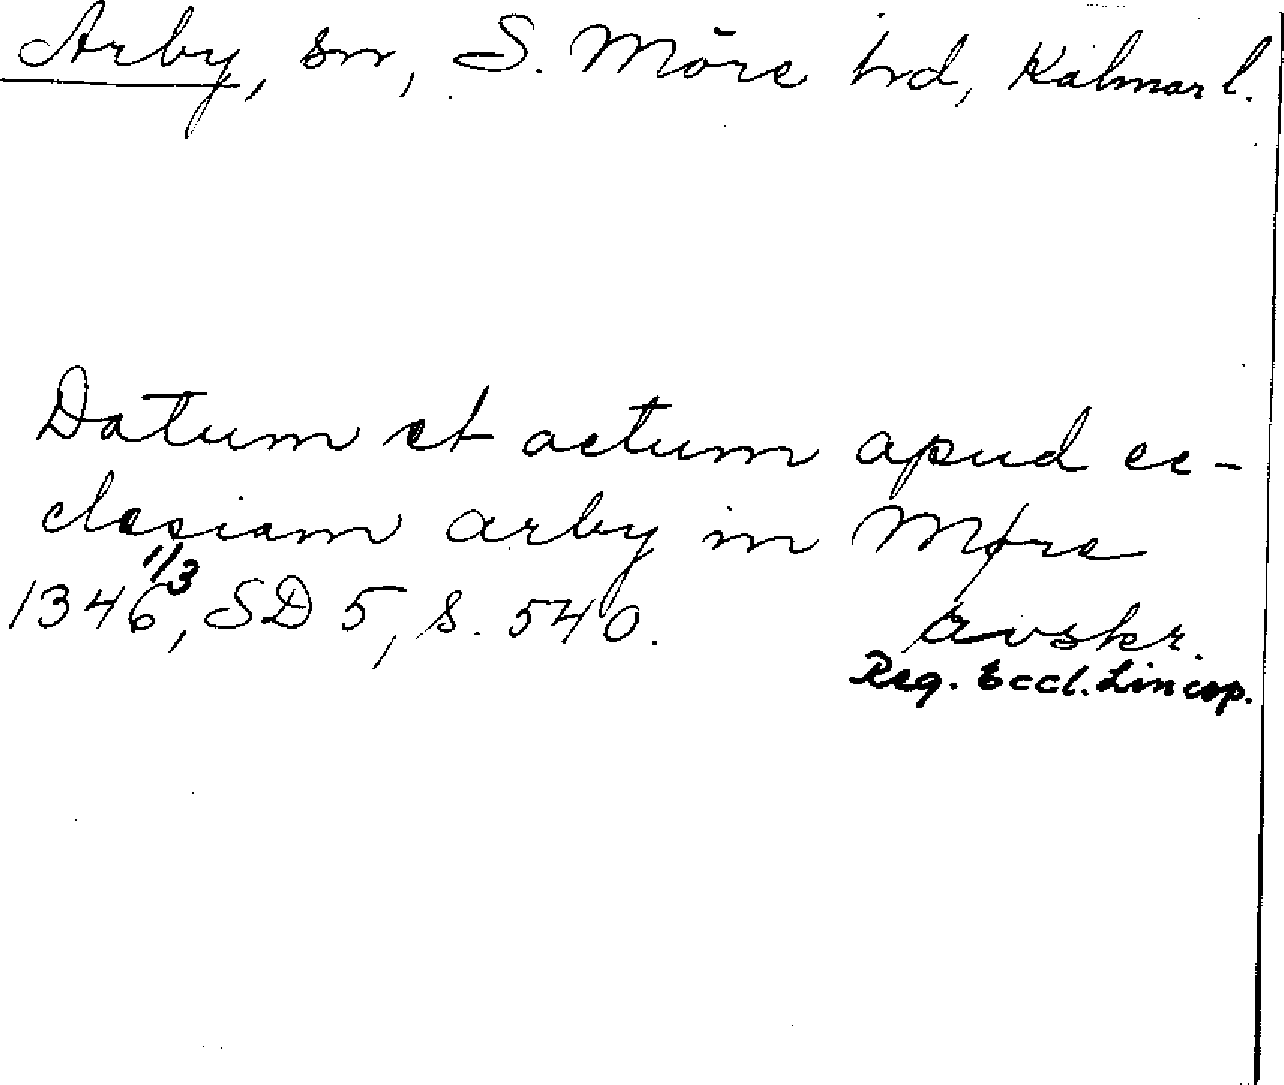 Arby, sn, S. Möre hrd, Kalmar l.
Datum et actum apud ec-
clesiam arby in Møre
1346 1/3, SD 5, s. 540. avskr.
Reg. Eccl. Lincop.